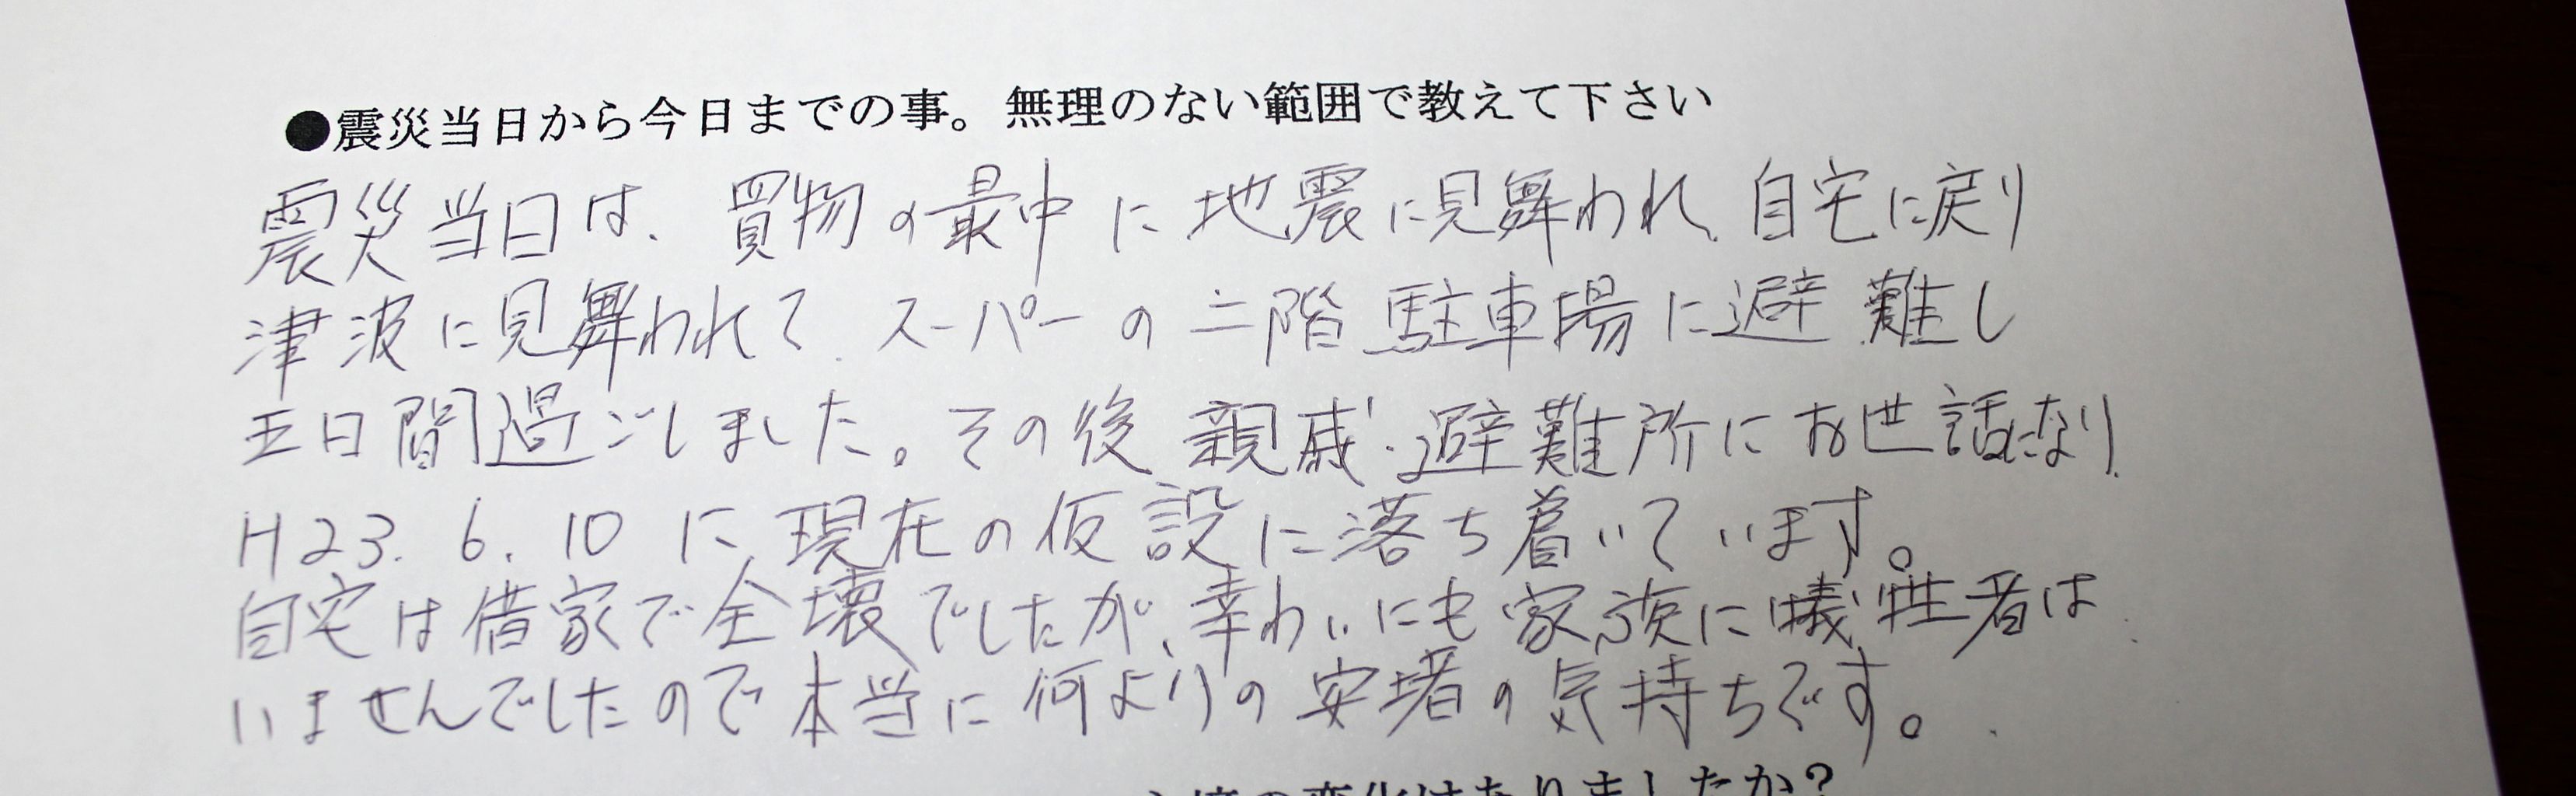 ●震災当日から今日までの事。無理のない範囲で教えて下さい
震災当日は、買物の最中に地震に見舞われ、自宅に戻り
津波に見舞われて、スーパーの二階駐車場に避難し
五日間過ごしました。その後親戚・避難所にお世話になり、
H23.6.10に現在の仮設に落ち着いています。
自宅は借家で全壊でしたが、幸わいにも家族に犠牲者は
いませんでしたので本当に何よりの安堵の気持ちです。
の変化はありましたか?